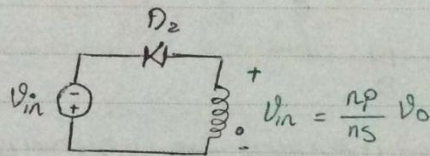 D₂
+
-
+
𝒱in
𝒱in = np/ns 𝒱o
-